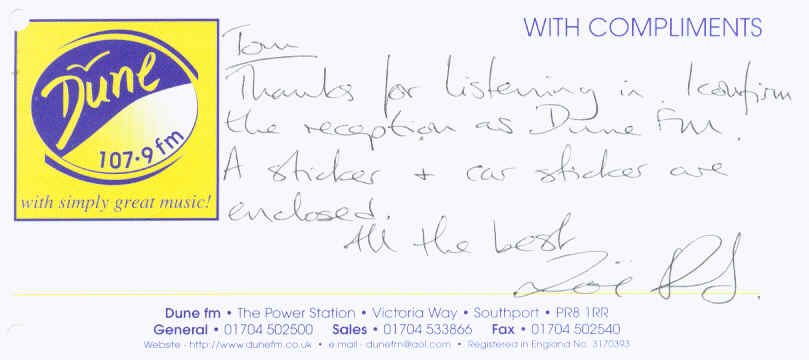 WITH COMPLIMENTS
Dune
107.9 fm
with simply great music!
Tom
Thanks for listening in. I confirm
the reception as Dune FM.
A sticker + car sticker are
enclosed.
All the best
Zoë
Dune fm • The Power Station • Victoria Way • Southport • PR8 1RR
General • 01704 502500 Sales • 01704 533866 Fax • 01704 502540
Website - http://www.dunefm.co.uk • e mail - dunefm@aol.com • Registered in England No. 3170393